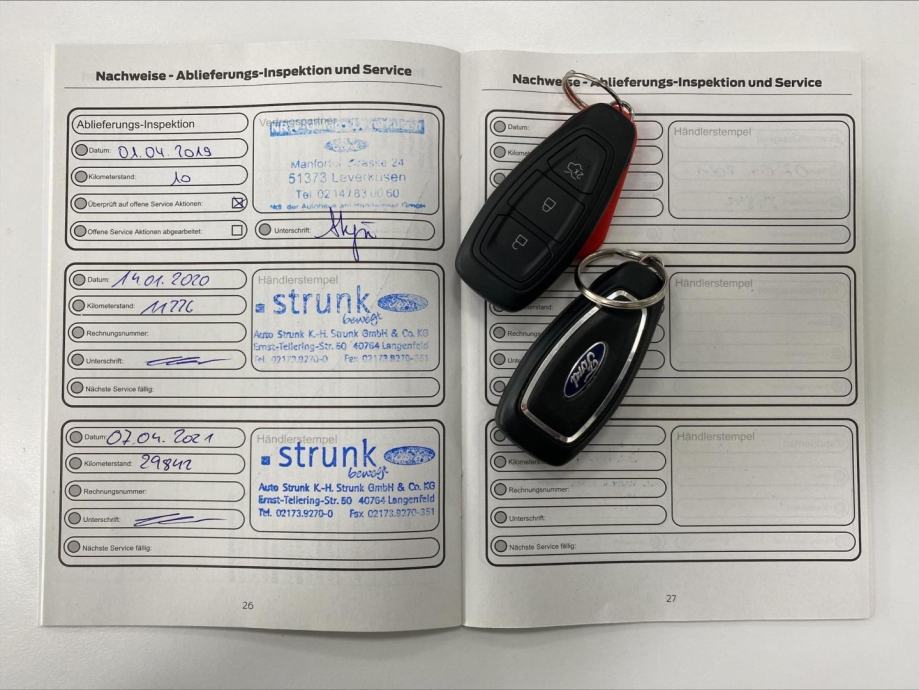 Nachweise - Ablieferungs-Inspektion und Service
Ablieferungs-Inspektion
Datum: 01.04.2019
Kilometerstand: 10
Überprüft auf offene Service Aktionen:
Offene Service Aktionen abgearbeitet:
Vertragspartner
Strasse 24
51373 Leverkusen
Tel
Unterschrift:
Datum: 14.01.2020
Kilometerstand: 11226
Rechnungsnummer:
Unterschrift:
Händlerstempel
strunk Ford
bewegt
Auto Strunk K.-H. Strunk GmbH & Co. KG
Ernst-Tellering-Str. 50 40764 Langenfeld
Tel. 02173.9270-0 Fax 02173.9270-351
Nächste Service fällig:
Datum: 07.04.2021
Kilometerstand: 29842
Rechnungsnummer:
Unterschrift:
Händlerstempel
strunk Ford
bewegt
Auto Strunk K.-H. Strunk GmbH & Co. KG
Ernst-Tellering-Str. 50 40764 Langenfeld
Tel. 02173.9270-0 Fax 02173.9270-351
Nächste Service fällig:
26
Nachweise - Ablieferungs-Inspektion und Service
Datum:
Händlerstempel
Händlerstempel
Ford
Händlerstempel
Kilometerstand:
Rechnungsnummer:
Unterschrift:
Nächste Service fällig:
27